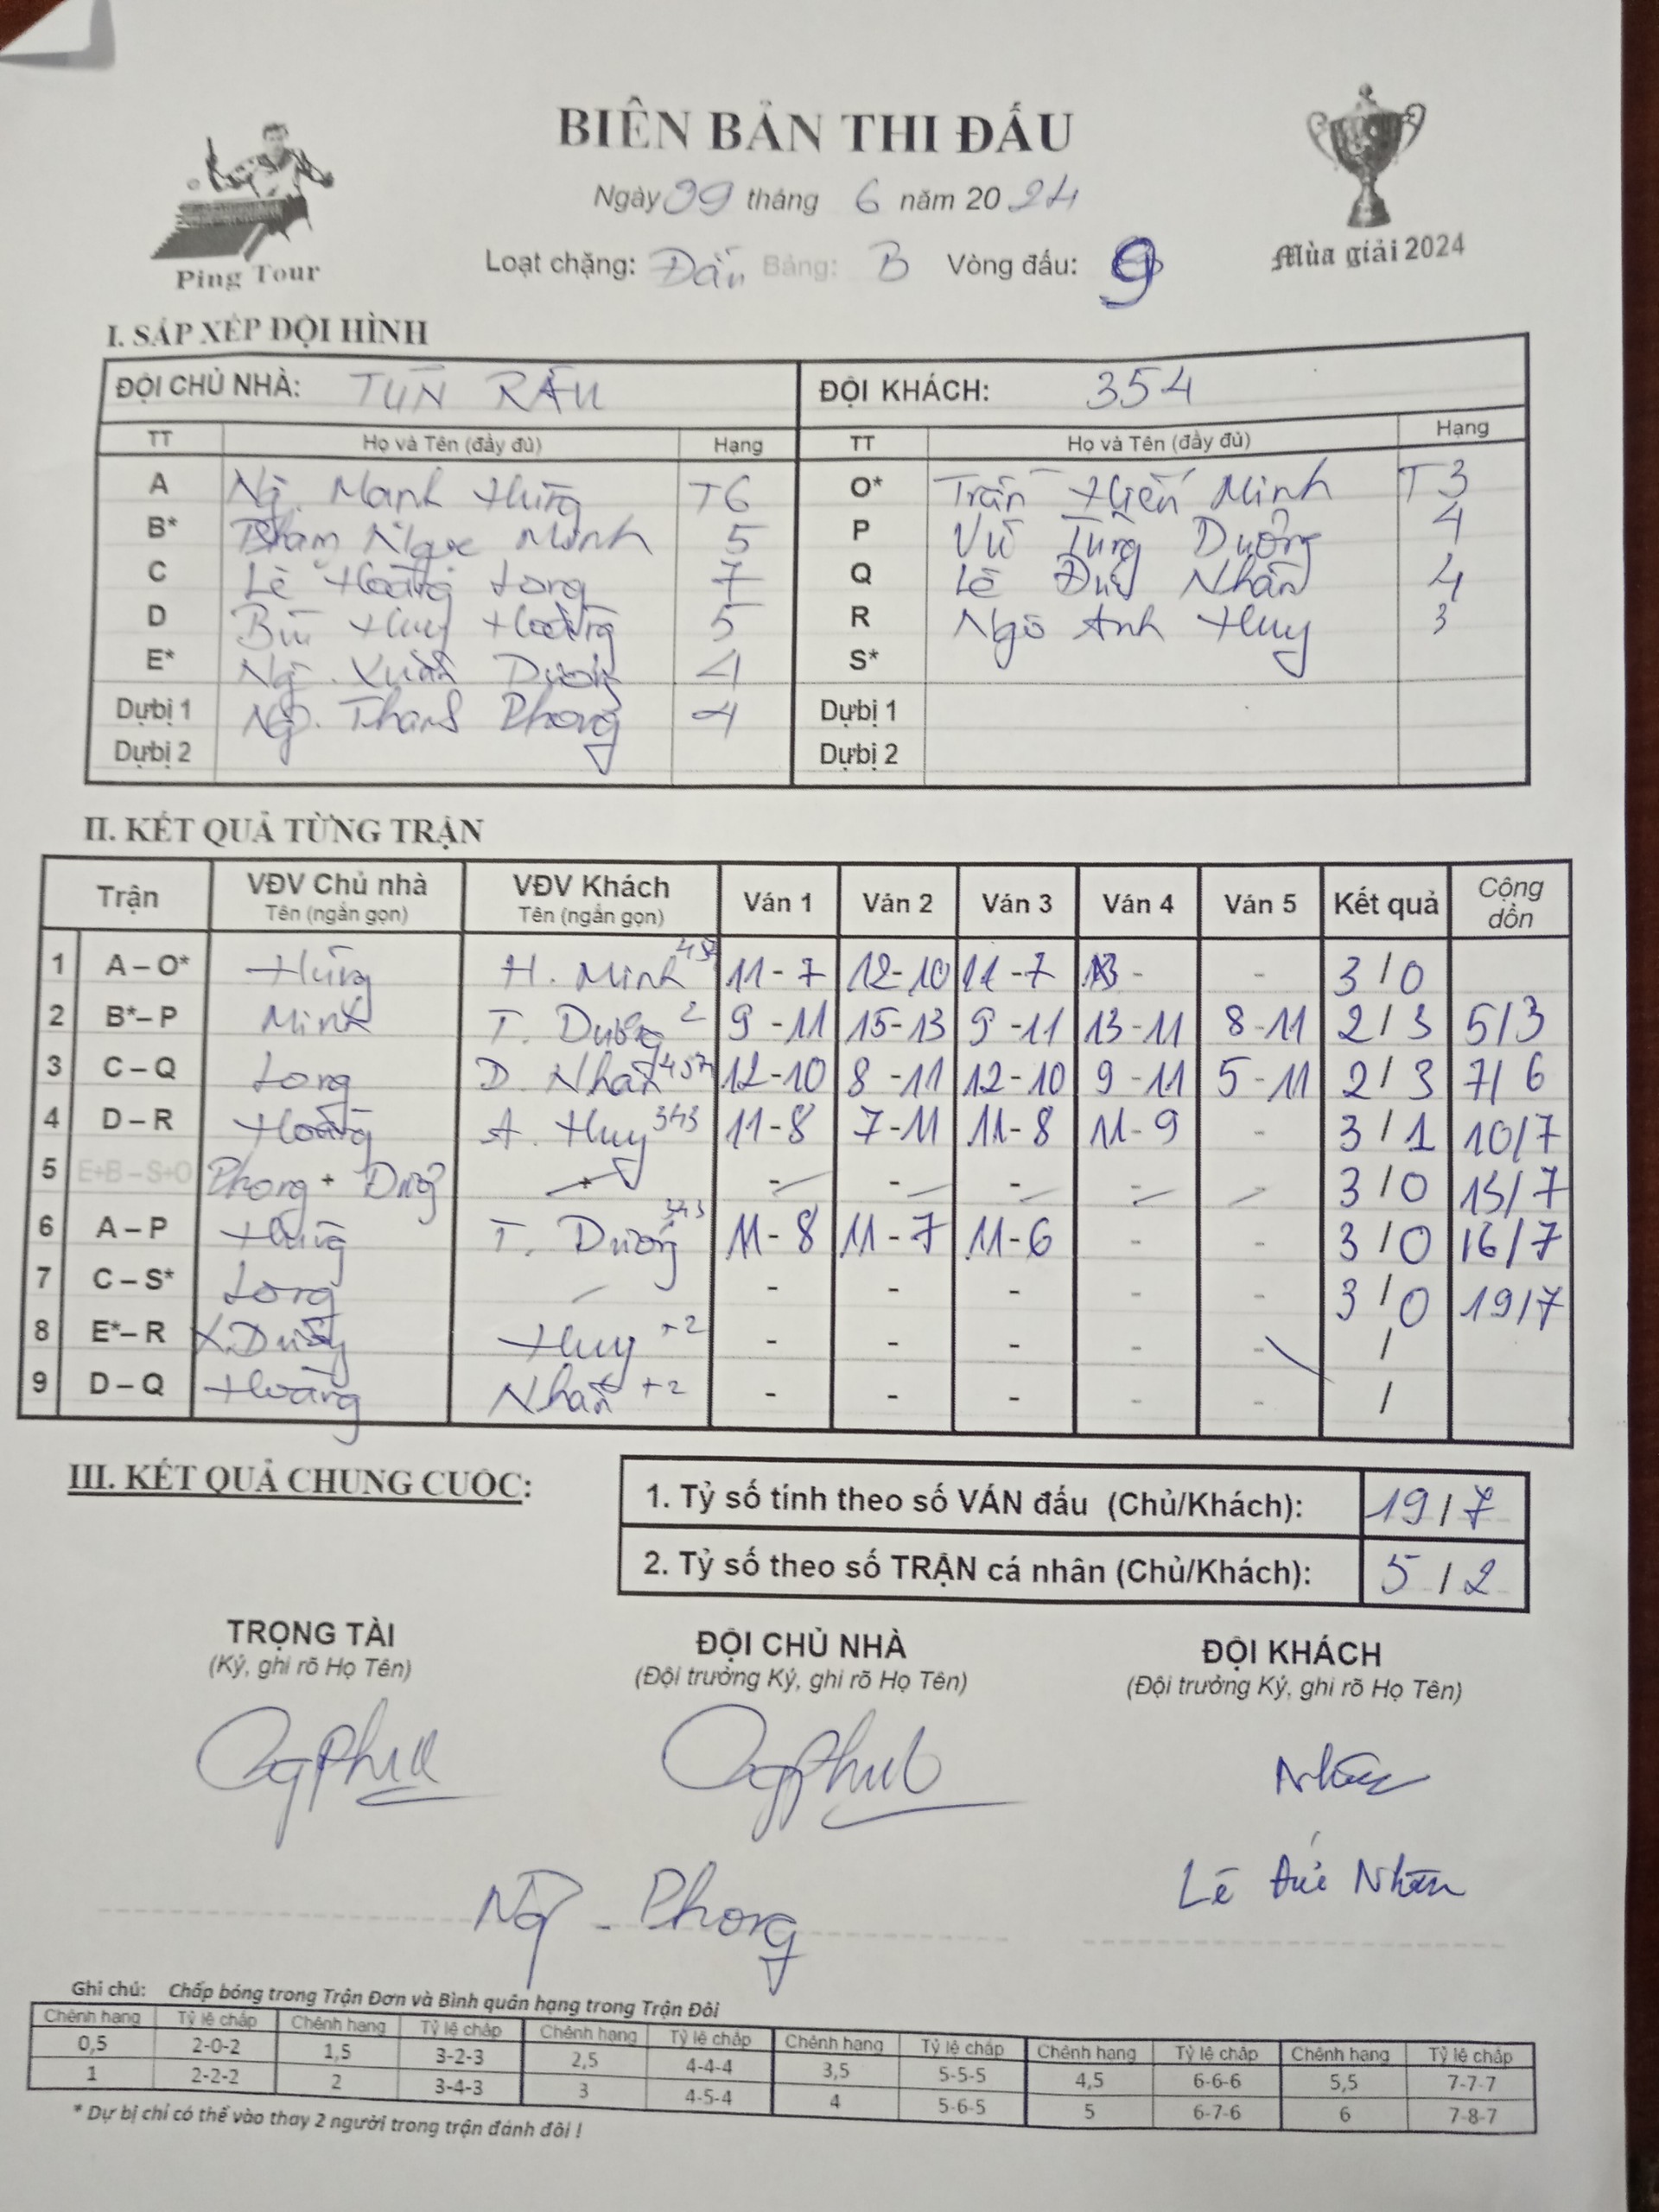 BIÊN BẢN THI ĐẤU
Ngày 09 tháng 6 năm 2024
Ping Tour
Loạt chặng: Đán Bảng: B Vòng đấu: 9
Mùa giải 2024
I. SẮP XẾP ĐỘI HÌNH
ĐỘI CHỦ NHÀ: TUN RÂU ĐỘI KHÁCH: 354
TT Họ và Tên (đầy đủ) Hạng TT Họ và Tên (đầy đủ) Hạng
A Ng. Mạnh Hùng T6 O* Trần Hiến Minh T3
B* Phạm Ngọc Minh 5 P Vũ Tùng Dương 4
C Lê Hoàng Long 7 Q Lê Đức Nhân 4
D Bùi Huy Hoàng 5 R Ngô Anh Huy 3
E* Ng. Xuân Dương 4 S*
Dự bị 1 Ng. Thanh Phong 4 Dự bị 1
Dự bị 2 Dự bị 2
II. KẾT QUẢ TỪNG TRẬN
Trận VĐV Chủ nhà Tên (ngắn gọn) VĐV Khách Tên (ngắn gọn) Ván 1 Ván 2 Ván 3 Ván 4 Ván 5 Kết quả Cộng dồn
1 A – O* Hùng H. Minh 11 - 7 12 - 10 11 - 7 - - 3 / 0
2 B* – P Minh T. Dương 2 9 - 11 15 - 13 9 - 11 13 - 11 8 - 11 2 / 3 5/3
3 C – Q Long D. Nhân 12 - 10 8 - 11 12 - 10 9 - 11 5 - 11 2 / 3 7/6
4 D – R Hoàng A. Huy 343 11 - 8 7 - 11 11 - 8 11 - 9 - 3 / 1 10/7
5 E+B – S+O Phong + Dương + - - - - - 3 / 0 13/7
6 A – P Hùng T. Dương 343 11 - 8 11 - 7 11 - 6 - - 3 / 0 16/7
7 C – S* Long - - - - - 3 / 0 19/7
8 E* – R X. Dương Huy +2 - - - - - /
9 D – Q Hoàng Nhân +2 - - - - - /
III. KẾT QUẢ CHUNG CUỘC:
1. Tỷ số tính theo số VÁN đấu (Chủ/Khách): 19 / 7
2. Tỷ số theo số TRẬN cá nhân (Chủ/Khách): 5 / 2
TRỌNG TÀI ĐỘI CHỦ NHÀ ĐỘI KHÁCH
(Ký, ghi rõ Họ Tên) (Đội trưởng Ký, ghi rõ Họ Tên) (Đội trưởng Ký, ghi rõ Họ Tên)
Nhân
Ng - Phong Lê Đức Nhân
Ghi chú: Chấp bóng trong Trận Đơn và Bình quân hạng trong Trận Đôi
Chênh hạng Tỷ lệ chấp Chênh hạng Tỷ lệ chấp Chênh hạng Tỷ lệ chấp Chênh hạng Tỷ lệ chấp Chênh hạng Tỷ lệ chấp Chênh hạng Tỷ lệ chấp
0,5 2-0-2 1,5 3-2-3 2,5 4-4-4 3,5 5-5-5 4,5 6-6-6 5,5 7-7-7
1 2-2-2 2 3-4-3 3 4-5-4 4 5-6-5 5 6-7-6 6 7-8-7
* Dự bị chỉ có thể vào thay 2 người trong trận đánh đôi !